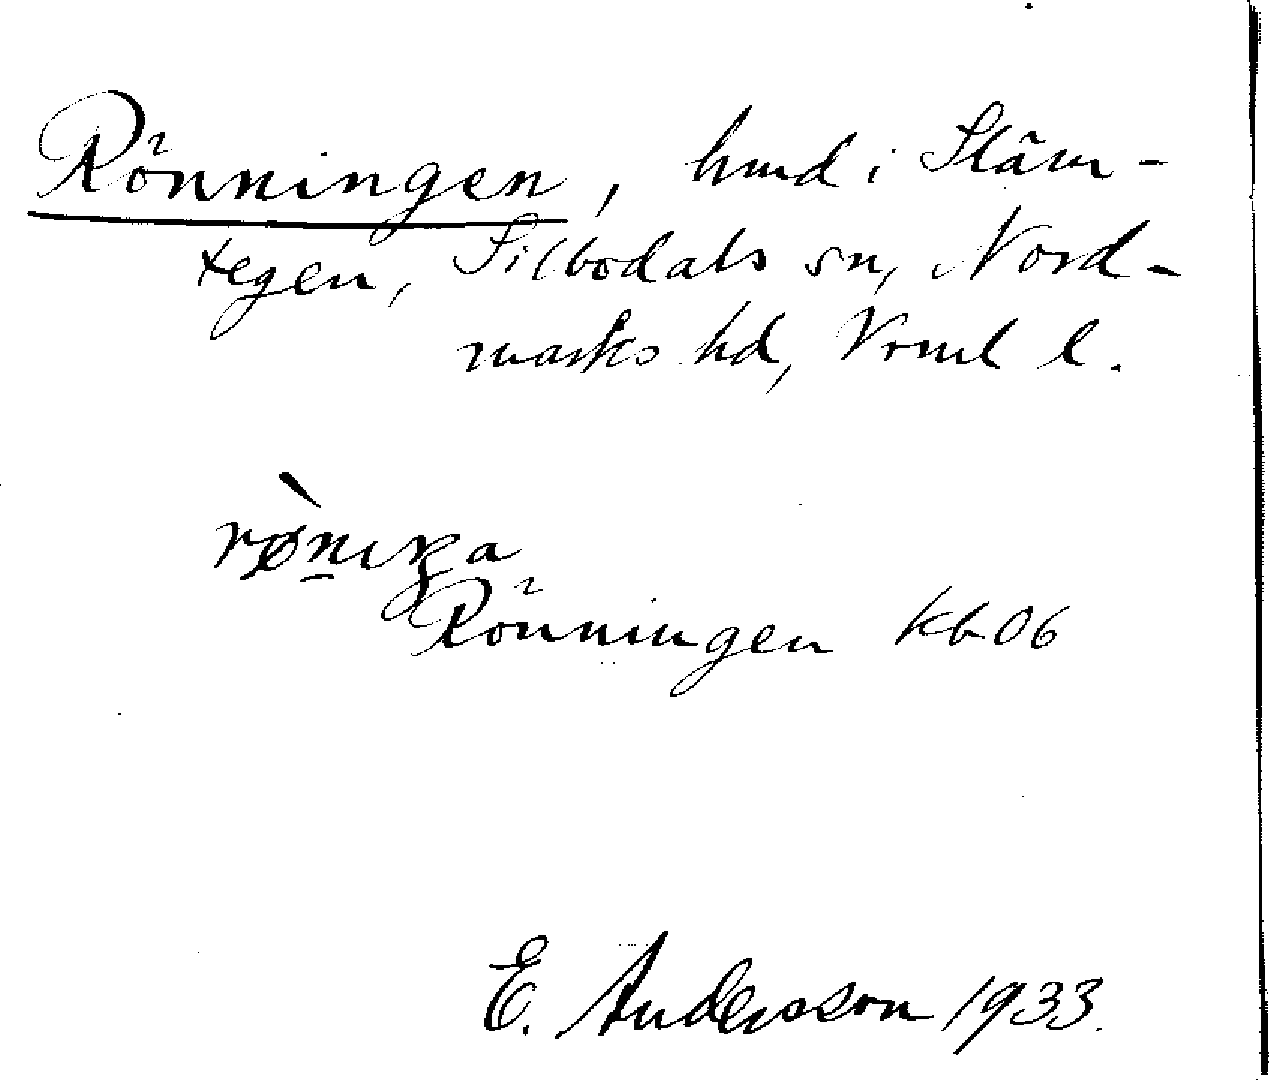 Rönningen, hmd i Släm-
tegen, Silbodals sn, Nord-
marks hd, Vrml l.
rø̀nıŋa
Rönningen kb 06
E. Andersson 1933.